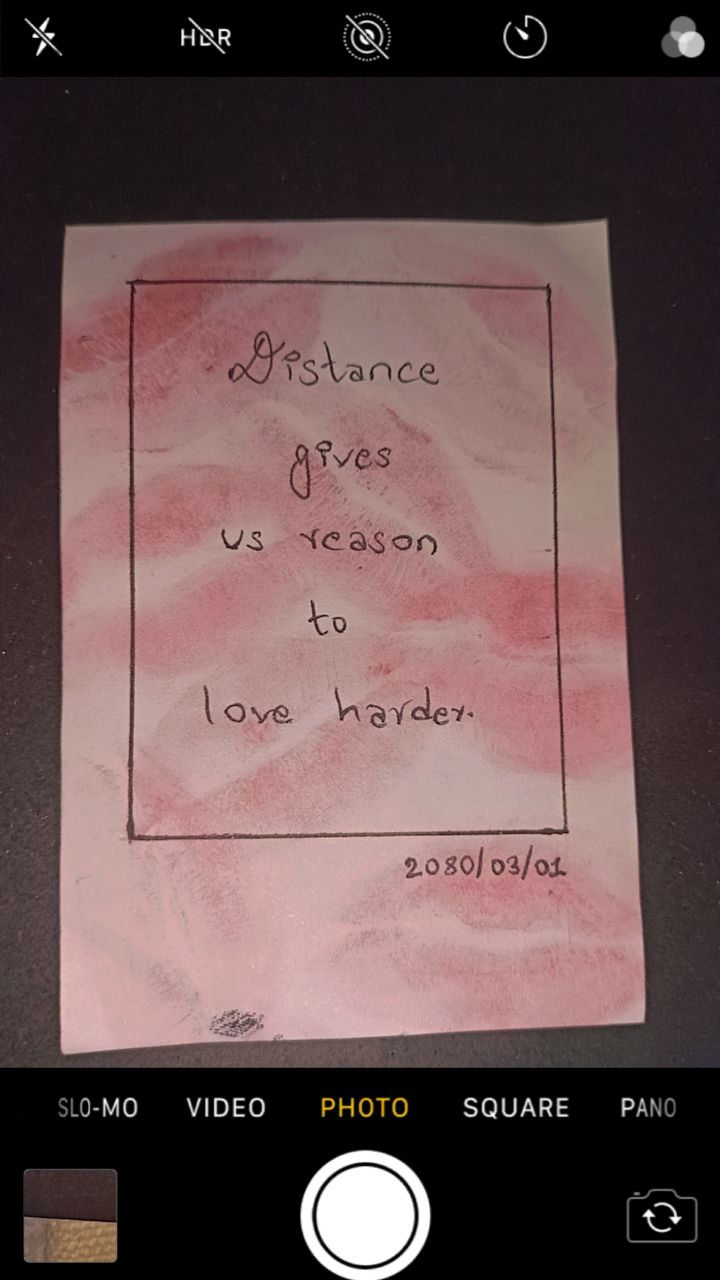 HDR
Distance
gives
us reason
to
love harder.
2080/03/01
SLO-MO VIDEO PHOTO SQUARE PANO